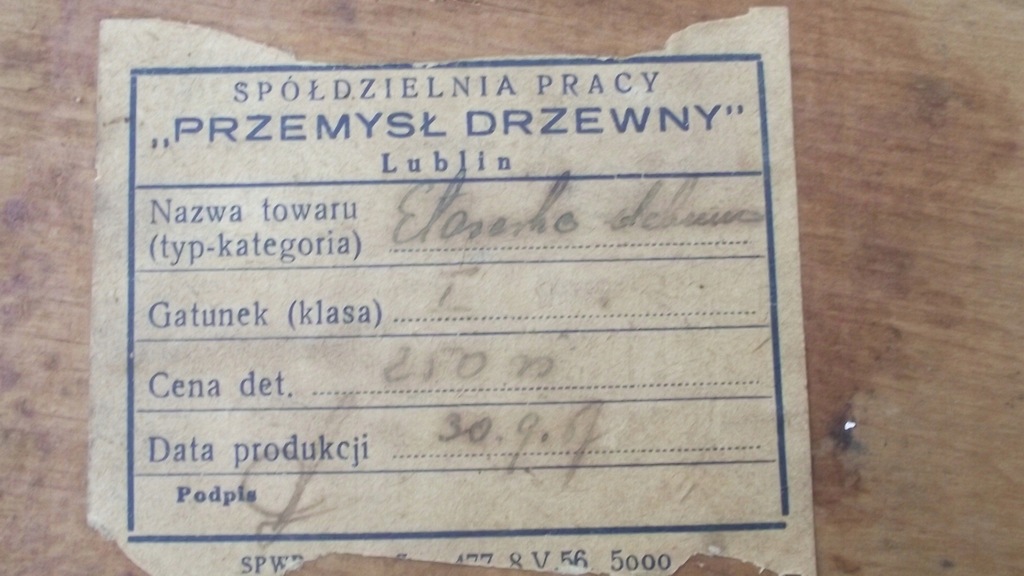 SPÓŁDZIELNIA PRACY
„PRZEMYSŁ DRZEWNY”
Lublin
Nazwa towaru
(typ-kategoria) Etażerka
Gatunek (klasa) I
Cena det. 250
Data produkcji 30.9.57
Podpis
SPWP 477 8 V.56 5000